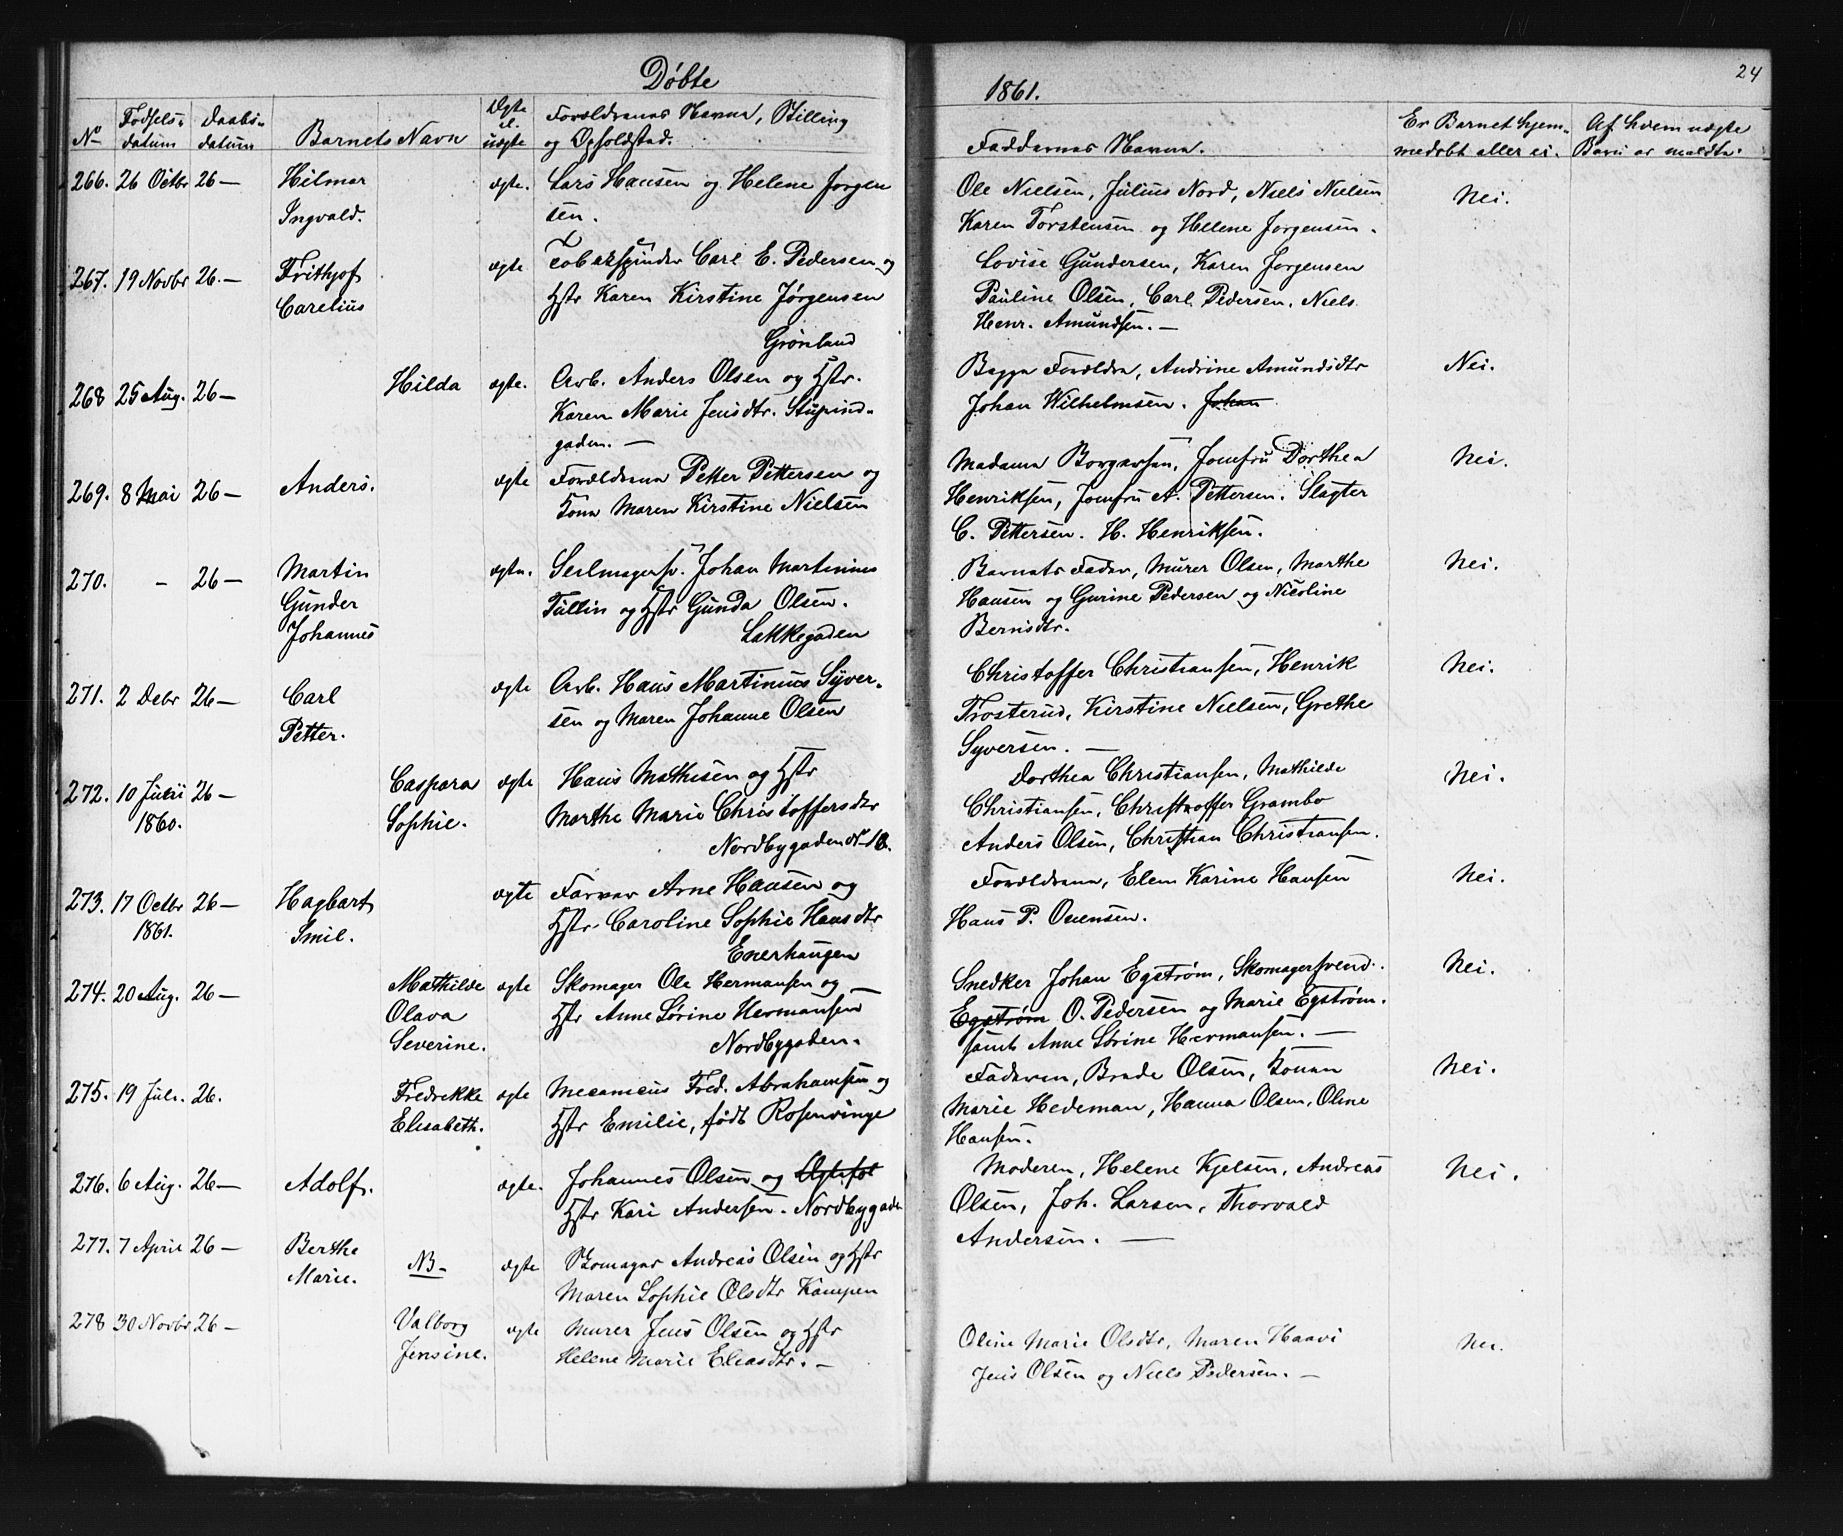 Døbte
1861.
24
No
Fødsels-
datum
Daabs-
datum
Barnets Navn
Ægte
el.
uægte
Forældrenes Navne, Stilling
og Opholdsted.
Faddernes Navne.
Er Barnet hjem-
medøbt eller ei.
Af hvem uægte
Børn er meldte.
266. 26 Octbr 26 — Hilmar ægte. Lars Hansen og Helene Jorgen
Ingvald. sen.
Ole Nielsen, Julius Nord, Niels Nielsen Nei.
Karen Torstensen og Helene Jorgensen.
267. 19 Novbr 26. — Frithjof ægte Tobakspinder Carl E. Pedersen og
Carelius Hstr Karen Kirstine Jørgensen
Grønland
Lovise Gundersen, Karen Jorgensen
Pauline Olsen, Carl Pedersen, Niels
Henr. Amundsen. —
268 25 Aug. 26 — Hilda ægte. Arb. Anders Olsen og Hstr.
Karen Marie Jensdtr. Stupind-
gaden. —
Begge Forældre, Andrine Amundsdtr Nei.
Johan Wilhelmsen. Johan
269. 8 Mai 26 — Anders. ægte Forældrene Petter Pettersen og
Kone Maren Kirstine Nielsen
Madame Borgersen, Jomfru Dorthea Nei.
Henriksen, Jomfru A. Pettersen. Slagter
C. Pettersen. H. Henriksen.
270. - 26 — Martin ægte. Seilmagersv. Johan Martinius
Gunder Tullin og Hstr Gunda Olsen.
Johannes Lakkegaden
Barnets Fader, Murer Olsen, Marthe Nei.
Hansen og Gurine Pedersen og Nicoline
Berntsdtr.
271. 2 Debr 26 — Carl ægte Arb. Hans Martinius Syver-
Petter. sen og Maren Johanne Olsen
Christoffer Christiansen, Henrik Nei.
Trosterud, Kirstine Nielsen, Grethe
Syversen. —
272. 10 Juni 26 — Caspara ægte Hans Mathisen og Hstr
1860. Sophie. Marthe Marie Christoffersdtr
Nordbygaden No 18.
Dorthea Christiansen, Mathilde Nei.
Christiansen, Christoffer Grambo
Anders Olsen, Christian Christiansen.
273. 17 Octbr 26 — Hagbart ægte Farver Arne Hansen og
1861. Emil. Hstr. Caroline Sophie Hansdtr
Enerhaugen
Forældrene, Elen Karine Hansen Nei.
Hans P. Ouensen.
274. 20 Aug. 26 — Mathilde ægte Skomager Ole Hermansen og
Olava Hstr Anne Sørine Hermansen
Severine. Nordbygaden.
Snedker Johan Egstrøm, Skomagersvend. Nei.
Egstrøm O. Pedersen og Marie Egstrøm.
samt Anne Sørine Hermansen. —
275. 19 Juli. 26. Fredrikke ægte Mecanicus Fred. Abrahamsen og
Elisabeth. Hstr Emilie, født Rosenvinge
Faderen, Brede Olsen, Konen Nei.
Marie Hedeman, Hanna Olsen, Oline
Hansen.
276. 6 Aug. 26 — Adolf. ægte. Johannes Olsen og Ægtefol
Hstr Kari Andersen. Nordbygade
Moderen, Helene Kjelsen, Andreas Nei.
Olsen, Joh. Larsen, Thorvald
Andersen. —
277. 7 April 26 — Berthe NB- ægte Skomager Andreas Olsen og Hstr
Marie. Maren Sophie Olsdtr Kampen
278 30 Novbr 26 — Valborg ægte Murer Jens Olsen og Hstr
Jensine. Helene Marie Eliasdtr. —
Oline Marie Olsdtr, Maren Haavi Nei.
Jens Olsen og Niels Pedersen. —